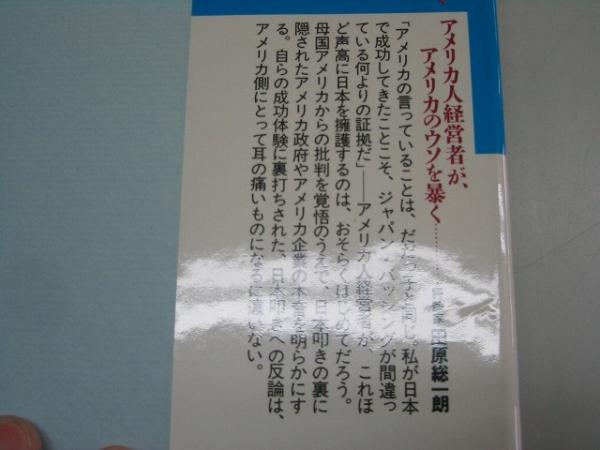 アメリカ人経営者が、
アメリカのウソを暴く………
評論家 田原総一朗
「アメリカの言っていることは、だだっ子と同じ。私が日本
で成功してきたことこそ、ジャパン・バッシングが間違っ
ている何よりの証拠だ」――アメリカ人経営者が、これほ
ど声高に日本を擁護するのは、おそらくはじめてだろう。
母国アメリカからの批判を覚悟のうえで、日本叩きの裏に
隠されたアメリカ政府やアメリカ企業の本音を明らかにす
る。自らの成功体験に裏打ちされた、日本叩きへの反論は、
アメリカ側にとって耳の痛いものになるに違いない。